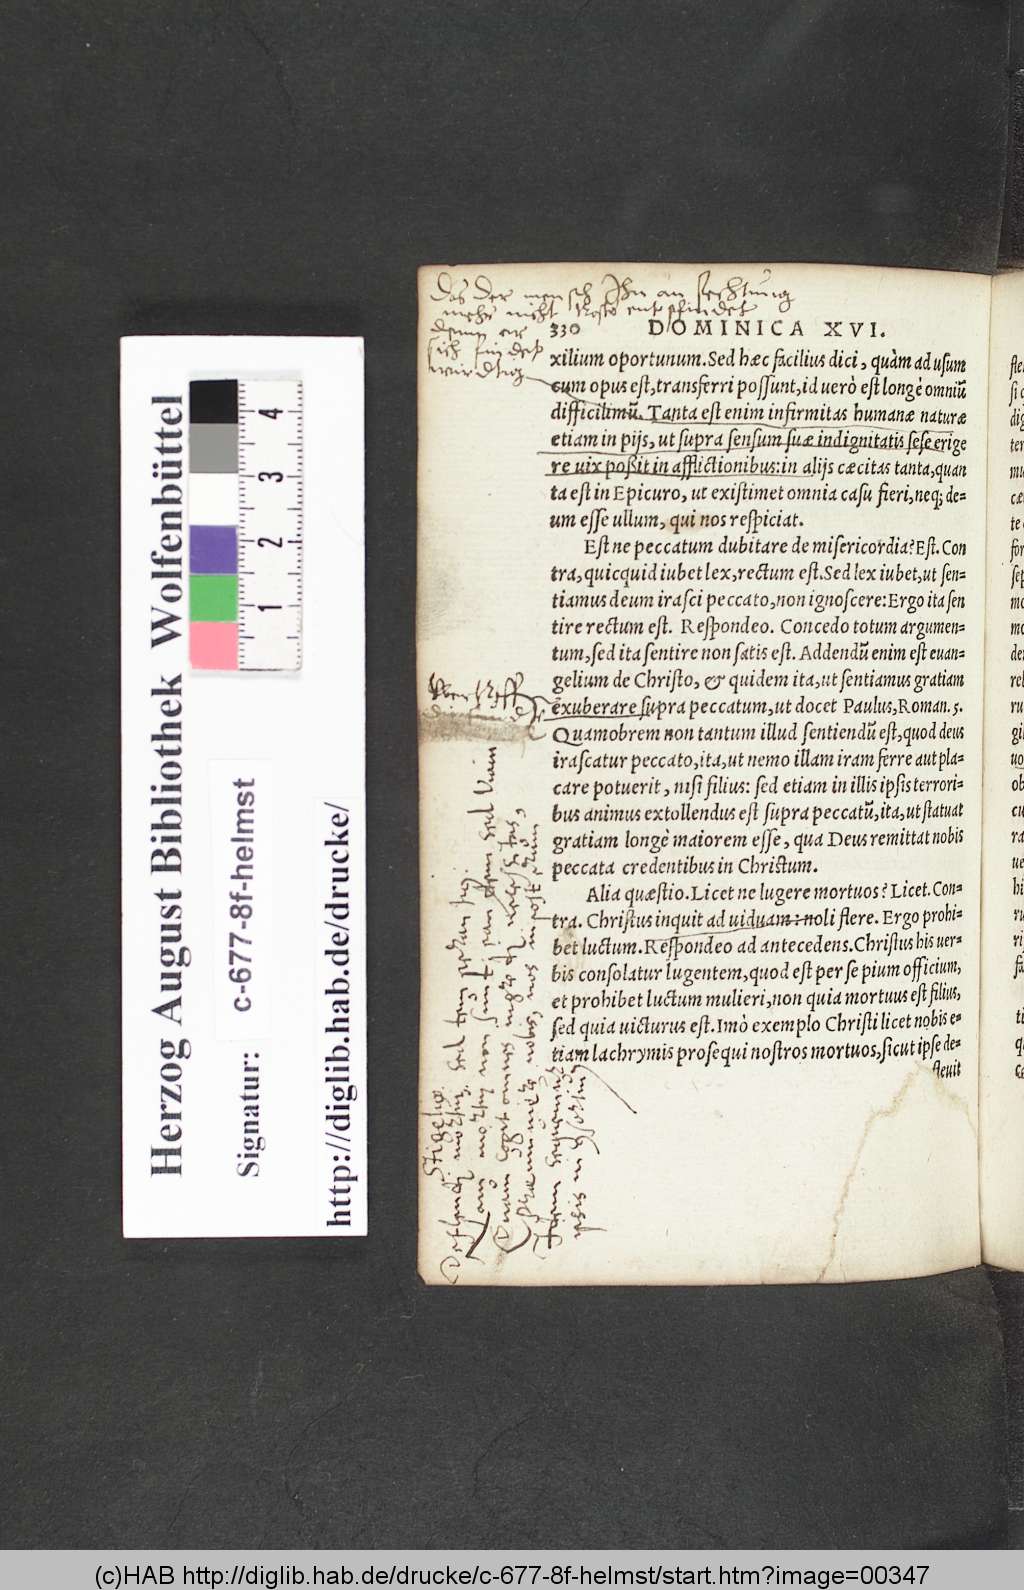 Herzog August Bibliothek Wolfenbüttel
Signatur: c-677-8f-helmst
http://diglib.hab.de/drucke/
1 2 3 4
Das der mensch Ihn an fechtung
mehr nicht
denn er
sich findet
wirdtig
330 DOMINICA XVI.
xilium oportunum. Sed hæc facilius dici, quàm ad usum
cum opus est, transferri possunt, id uerò est longè omniū
difficilimū. Tanta est enim infirmitas humanæ naturæ
etiam in pijs, ut supra sensum suæ indignitatis sese erige
re uix poßit in afflictionibus: in alijs cæcitas tanta, quan
ta est in Epicuro, ut existimet omnia casu fieri, neq; de=
um esse ullum, qui nos respiciat.
Est ne peccatum dubitare de misericordia? Est. Con
tra, quicquid iubet lex, rectum est. Sed lex iubet, ut sen=
tiamus deum irasci peccato, non ignoscere: Ergo ita sen
tire rectum est. Respondeo. Concedo totum argumen=
tum, sed ita sentire non satis est. Addendū enim est euan=
gelium de Christo, & quidem ita, ut sentiamus gratiam
exuberare supra peccatum, ut docet Paulus, Roman. 5.
Quamobrem non tantum illud sentiendū est, quod deus
irascatur peccato, ita, ut nemo illam iram ferre aut pla=
care potuerit, nisi filius: sed etiam in illis ipsis terrori=
bus animus extollendus est supra peccatū, ita, ut statuat
gratiam longè maiorem esse, qua Deus remittat nobis
peccata credentibus in Christum.
Alia quæstio. Licet ne lugere mortuos? Licet. Con=
tra. Christus inquit ad uiduam: noli flere. Ergo prohi=
bet luctum. Respondeo ad antecedens. Christus his uer=
bis consolatur lugentem, quod est per se pium officium,
et prohibet luctum mulieri, non quia mortuus est filius,
sed quia uicturus est. Imò exemplo Christi licet nobis e=
tiam lachrymis prosequi nostros mortuos, sicut ipse de=
fleuit
(c)HAB http://diglib.hab.de/drucke/c-677-8f-helmst/start.htm?image=00347